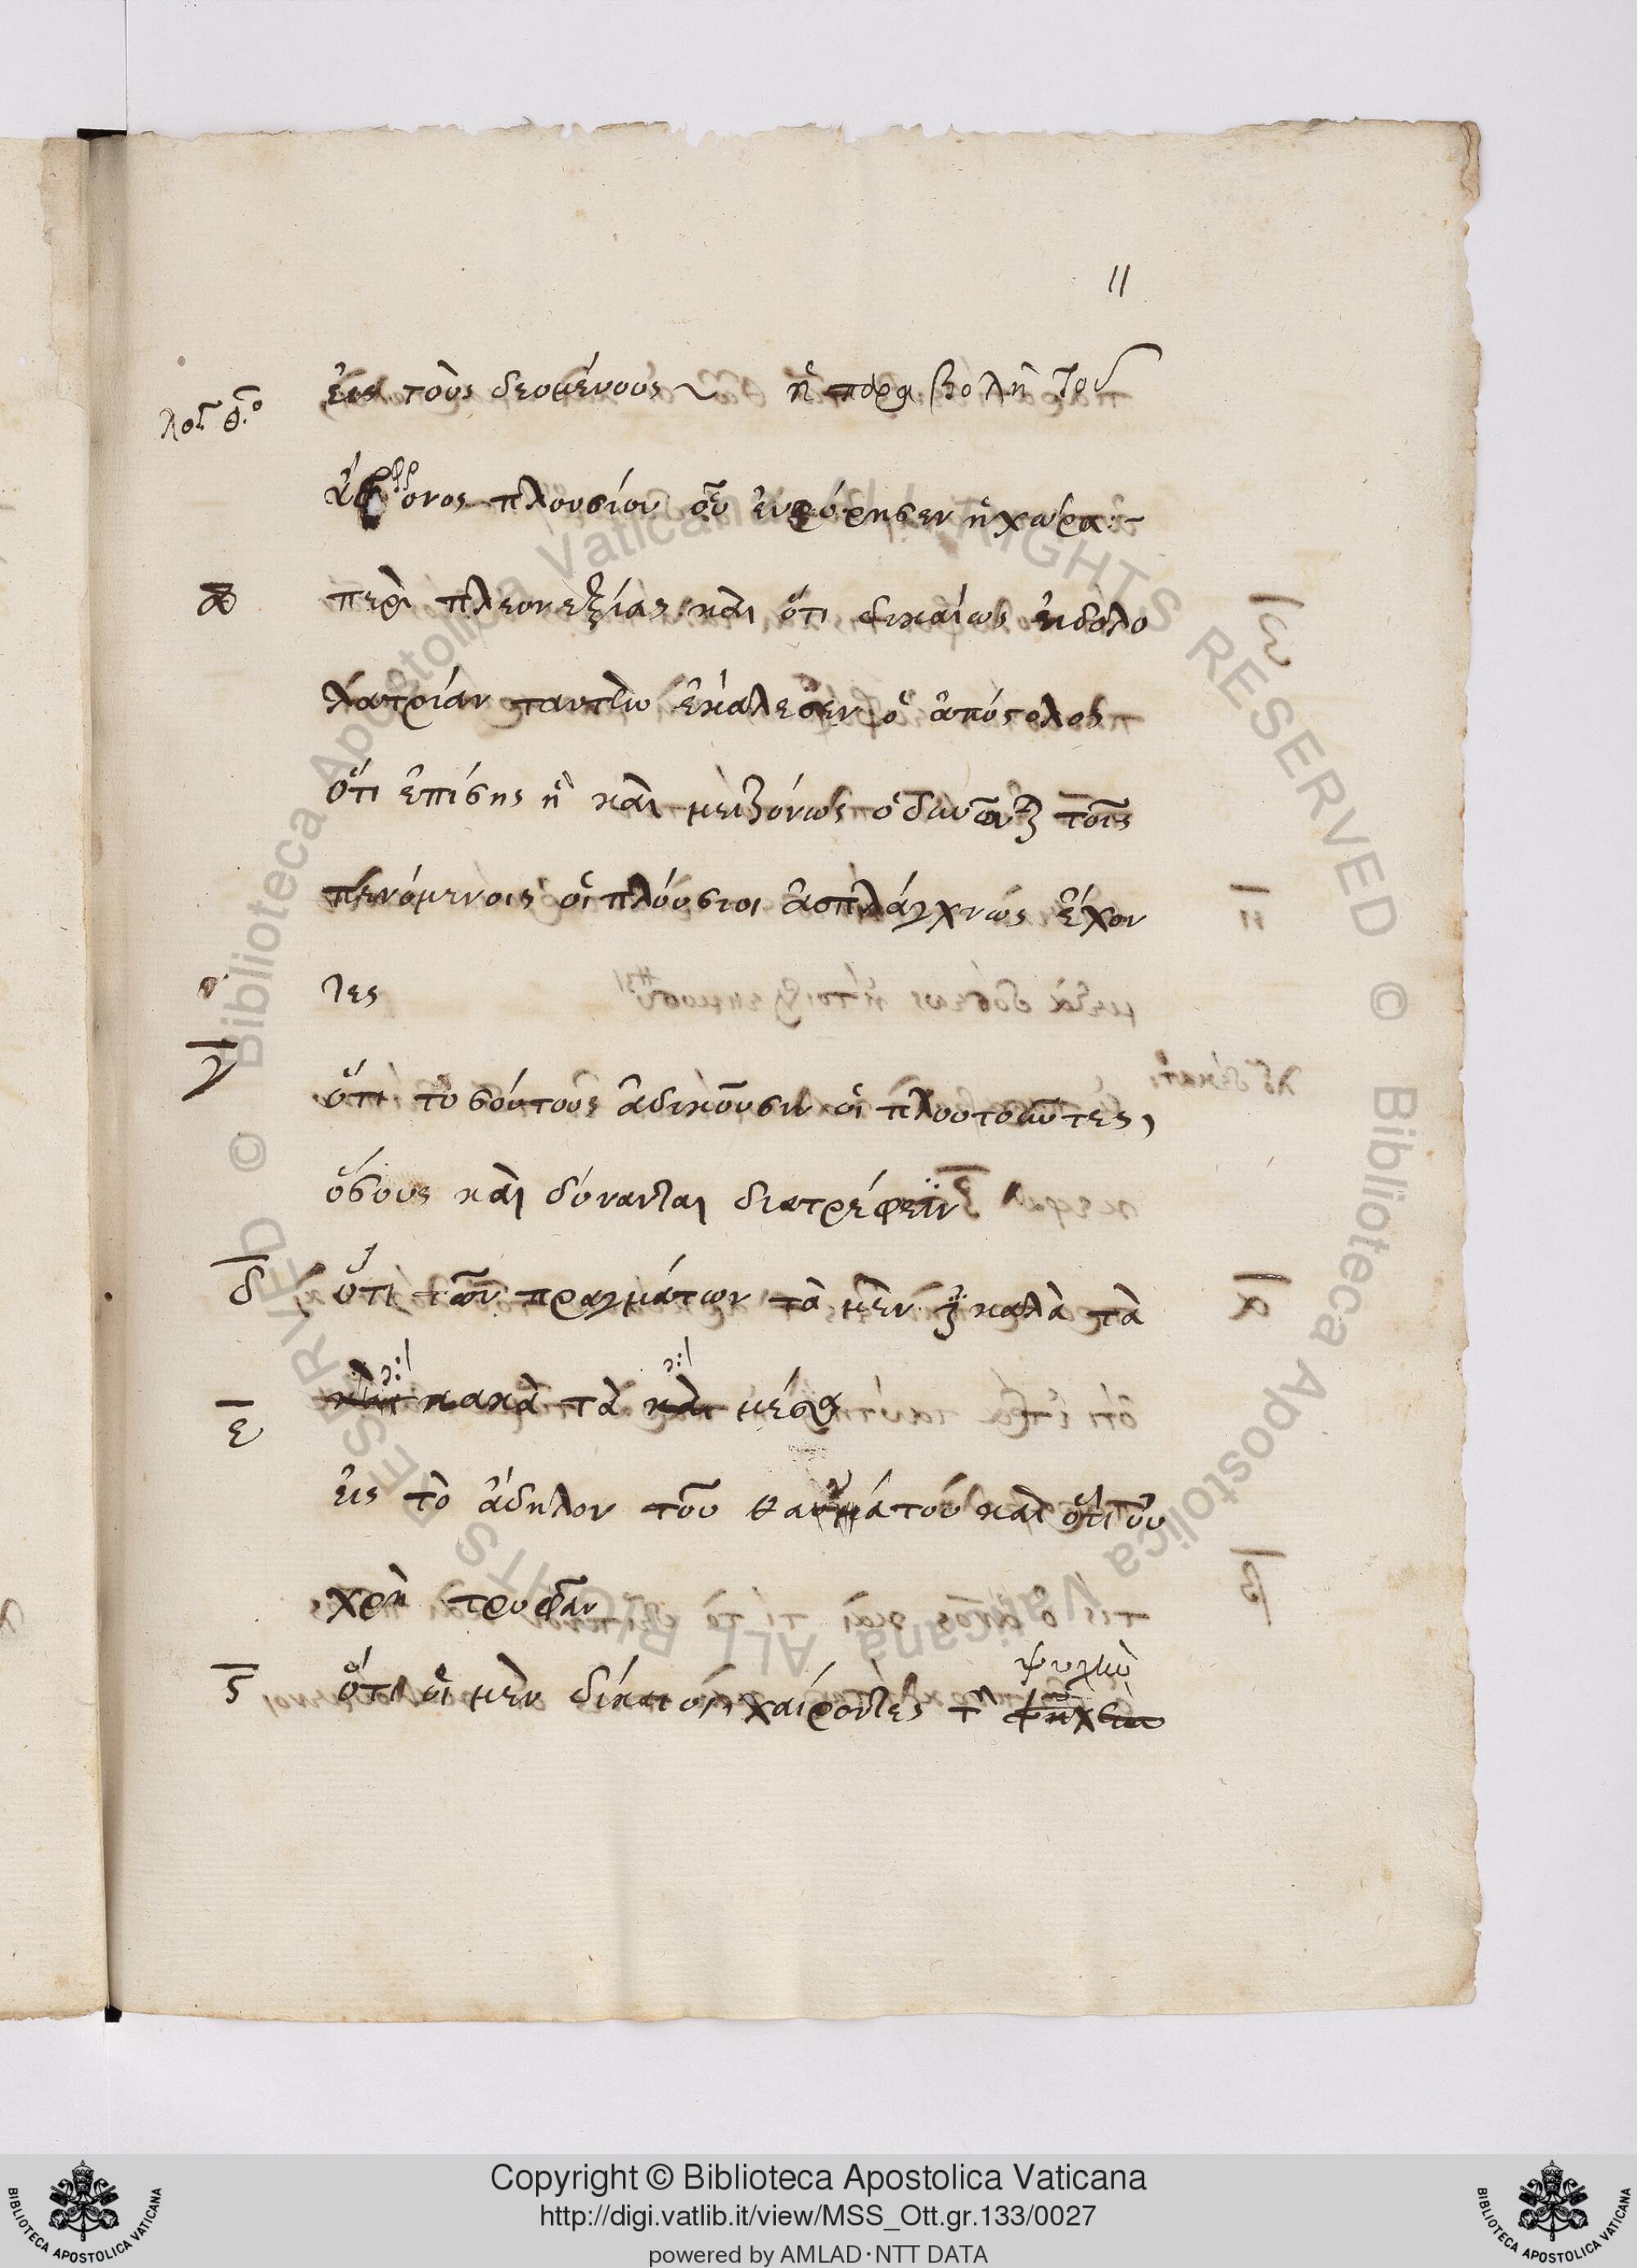 11
εἰς τοὺς δεομένους ~ ἡ παραβολὴ τοῦ
λό. θ.ο
ἄφρονος πλουσίου οὗ εὐφόρησεν ἡ χώρα :~
α περὶ πλεονεξίας καὶ ὅτι δικαίως εἰδόλο
λατρίαν ταύτην ἐκάλεσεν ὁ ἀπόστολος
ὅτι ἐπίσης ἢ καὶ μειζόνως ὀδυνῶνται τοῖς
πενόμενοις οἱ πλούσιοι ἀσπλάγχνως ἔχον
τες
γ
ὅτι τοσούτους ἀδικοῦσιν οἱ πλουτοῦντες,
ὅσους καὶ δύνανται διατρέφειν
δ ὅτι τῶν πραγμάτων τὰ μὲν καλὰ τὰ
κακὰ τὰ μέσα
ε
εἰς τὸ ἄδηλον τοῦ θανάτου καὶ ὅτι οὐ
χρὴ τρυφᾶν
ψυχὴν
ς ὅτι οἱ μὲν δίκαιοι χαίροντες τὴν
Copyright © Biblioteca Apostolica Vaticana
http://digi.vatlib.it/view/MSS_Ott.gr.133/0027
powered by AMLAD·NTT DATA
BIBLIOTECA APOSTOLICA VATICANA
BIBLIOTECA APOSTOLICA VATICANA